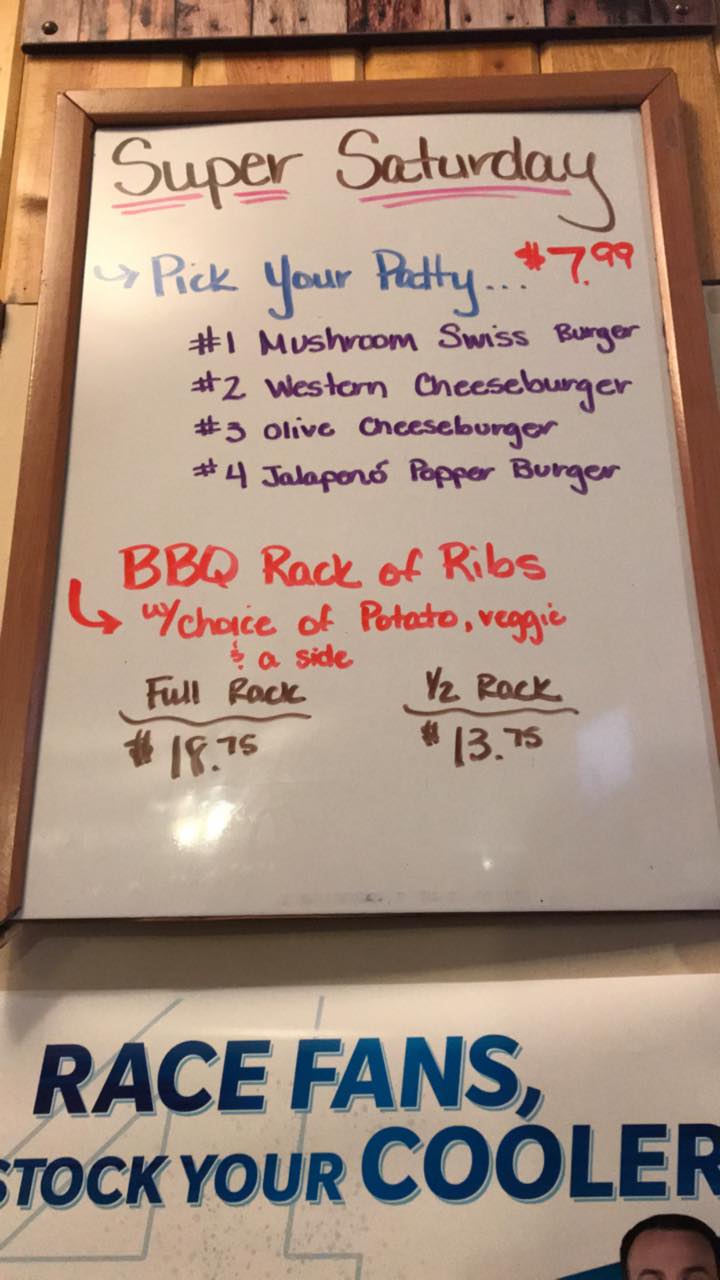 Super Saturday
Pick Your Patty... $7.99
#1 Mushroom Swiss Burger
#2 Western Cheeseburger
#3 Olive Cheeseburger
#4 Jalapenó Popper Burger
BBQ Rack of Ribs
w/choice of Potato, veggie
& a side
Full Rack 1/2 Rack
$18.75 $13.75
RACE FANS,
STOCK YOUR COOLER